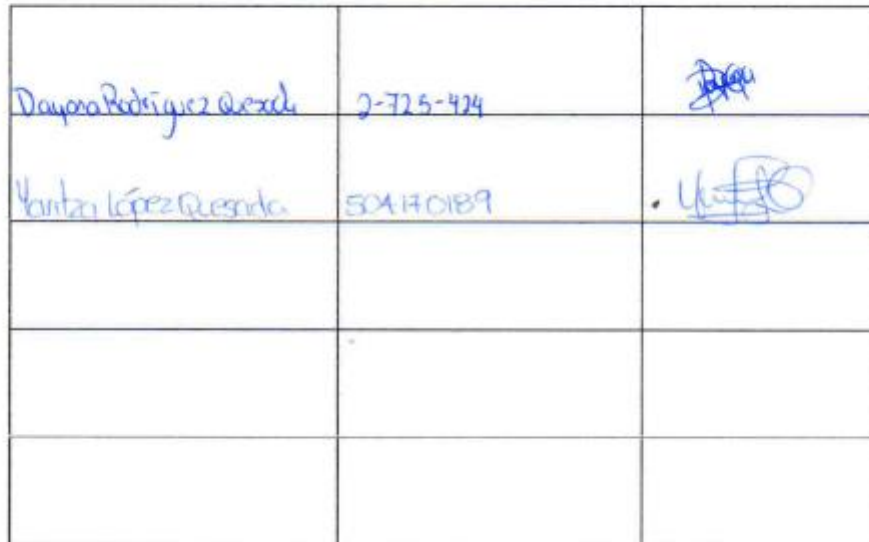 Dayana Rodríguez Quesada 2-725-424
Yaritza López Quesada 504170189